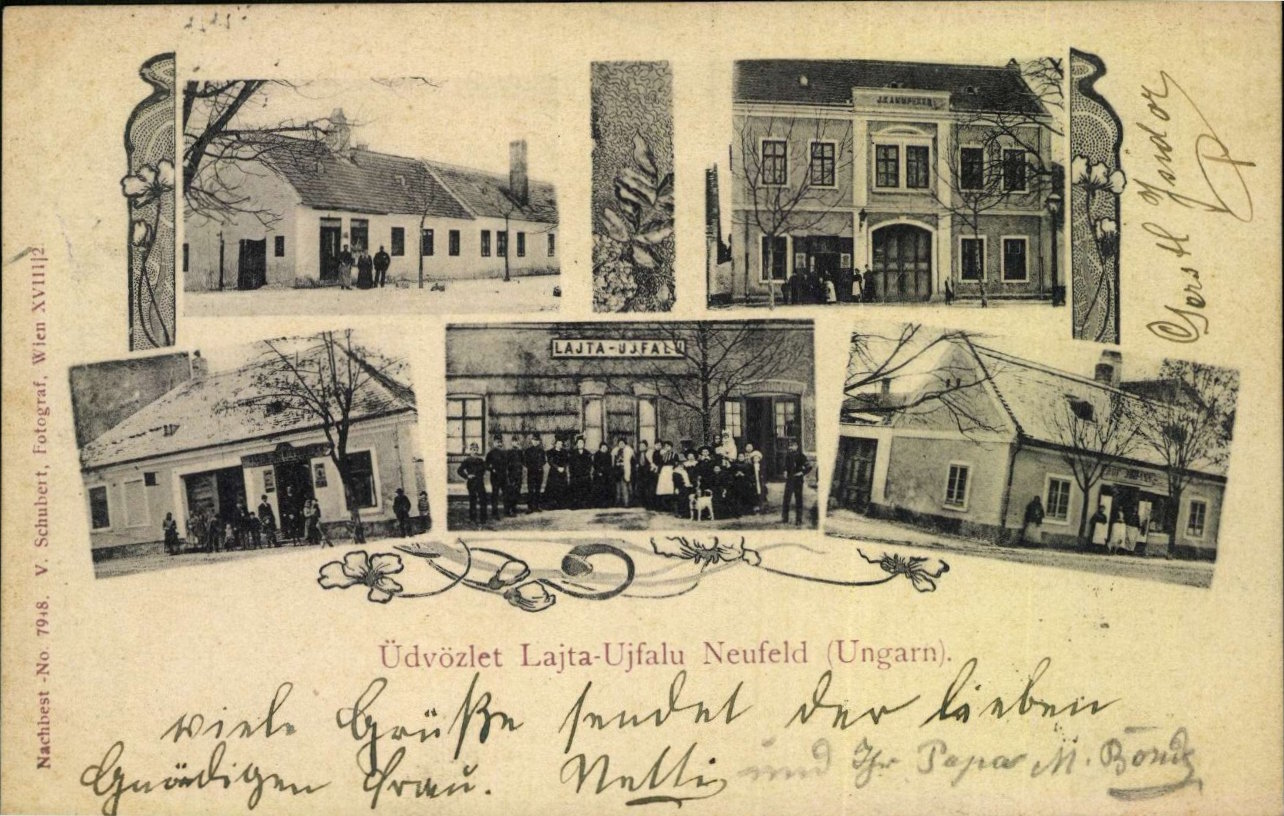 LAJTA-UJFALU
Gerstl Isidor
Nachbest.-No. 7948. V. Schubert, Fotograf, Wien XVIII|2
Üdvözlet Lajta-Ujfalu Neufeld (Ungarn).
viele Grüße sendet der lieben
Gnädigen Frau. Netti und Ihr Papa M.